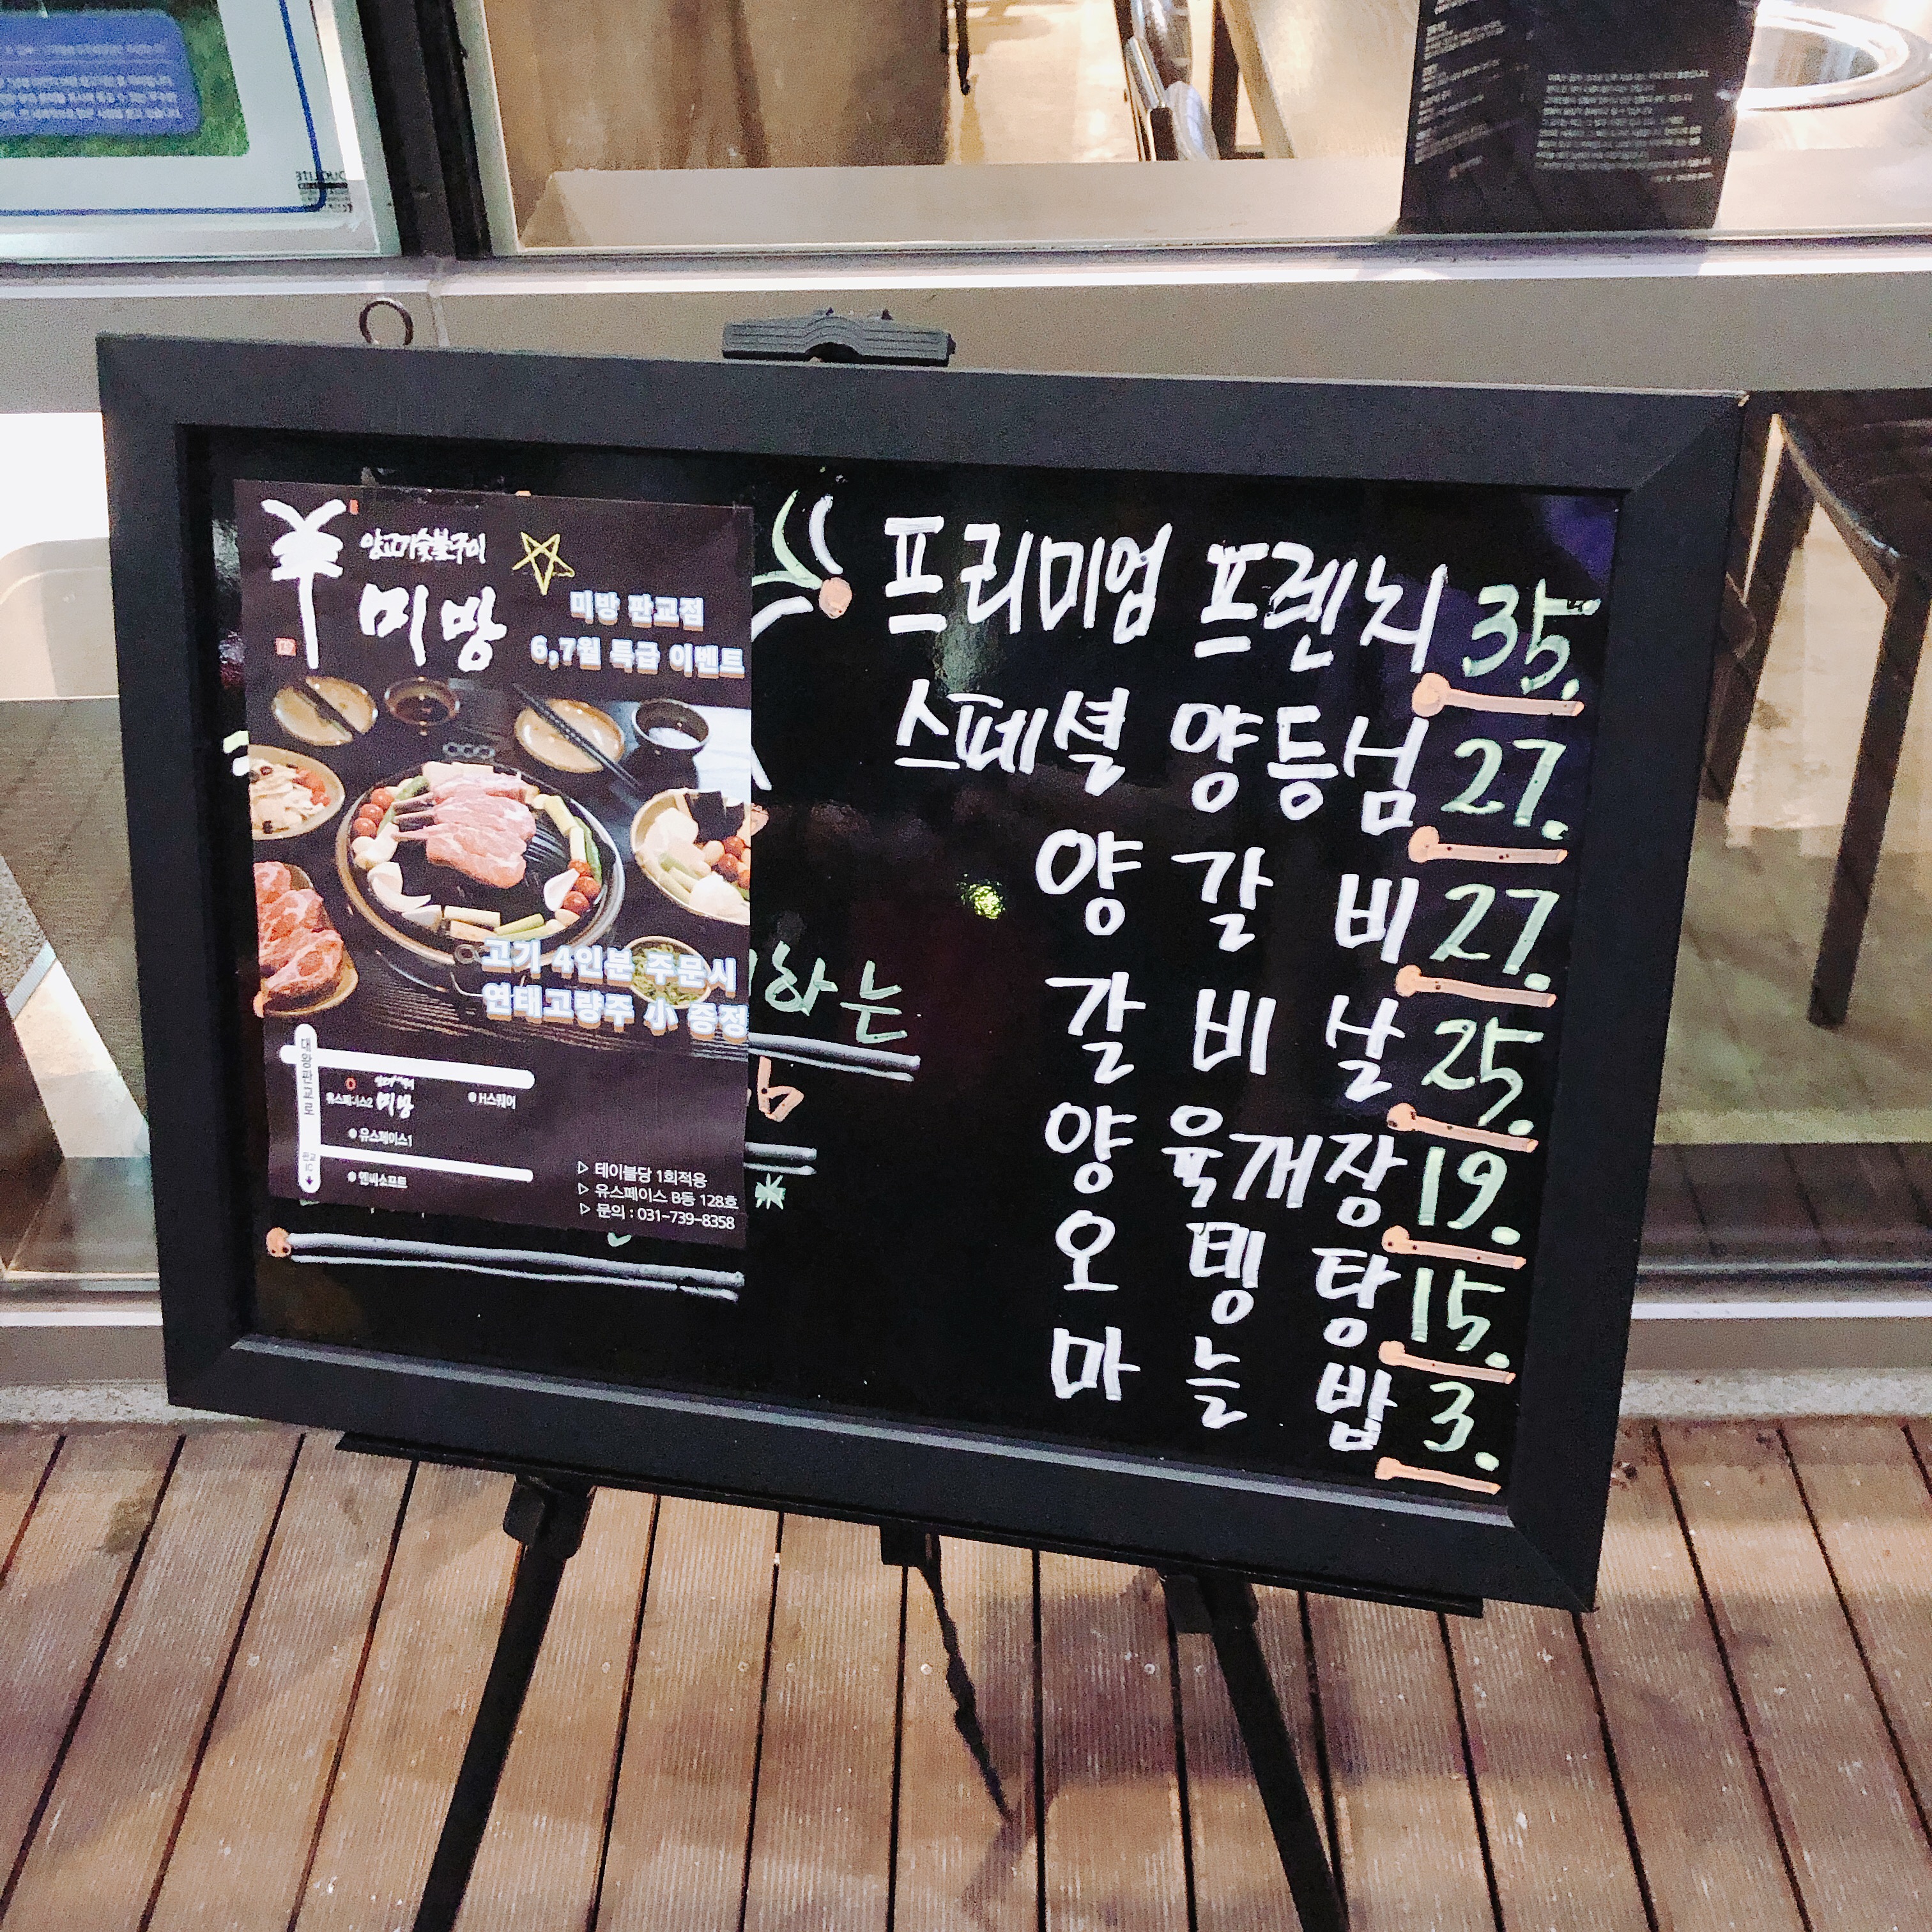 양고기숯불구이
미방
미방 판교점
6,7월 특급 이벤트
고기 4인분 주문시
연태고량주 小 증정
대왕판교로
유스페이스2 미방
H스퀘어
유스페이스1
엔씨소프트
▷ 테이블당 1회적용
▷ 유스페이스 B동 128호
▷ 문의 : 031-739-8358
하는
프리미엄 프렌치 35.
스페셜 양등심 27.
양갈비 27.
갈비살 25.
양육개장 19.
오뎅탕 15.
마늘밥 3.